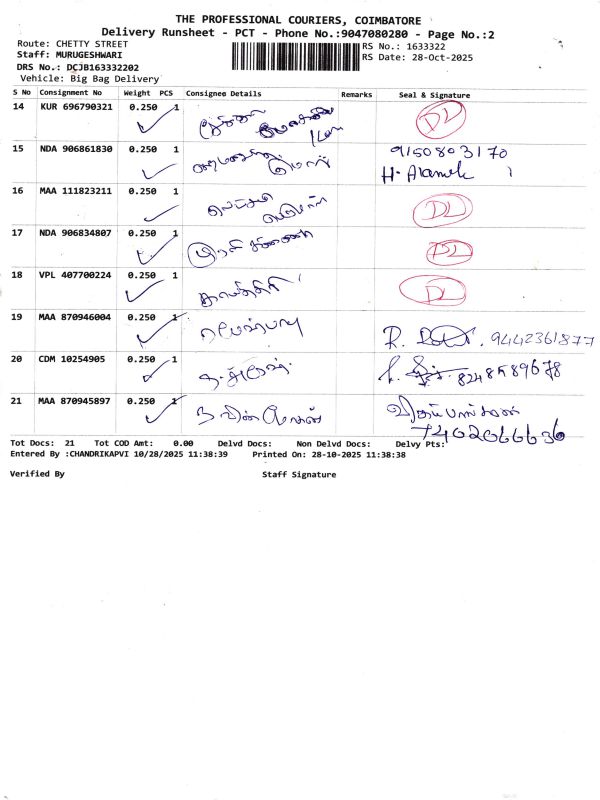 THE PROFESSIONAL COURIERS, COIMBATORE
Delivery Runsheet - PCT - Phone No.:9047080280 - Page No.:2
Route: CHETTY STREET
Staff: MURUGESHWARI
DRS No.: DCJB163332202
Vehicle: Big Bag Delivery
RS No.: 1633322
RS Date: 28-Oct-2025
S No Consignment No Weight PCS Consignee Details Remarks Seal & Signature
14 KUR 696790321 0.250 1 DL
15 NDA 906861830 0.250 1 9150803170
H.
16 MAA 111823211 0.250 1 DL
17 NDA 906834807 0.250 1 DL
18 VPL 407700224 0.250 1 காயத்திரி DL
19 MAA 870946004 0.250 1 R. 9442361877
20 CDM 10254905 0.250 1 8248589678
21 MAA 870945897 0.250 1 நவின்
7402066636
Tot Docs: 21 Tot COD Amt: 0.00 Delvd Docs: Non Delvd Docs: Delvy Pts:
Entered By :CHANDRIKAPVI 10/28/2025 11:38:39 Printed On: 28-10-2025 11:38:38
Verified By Staff Signature